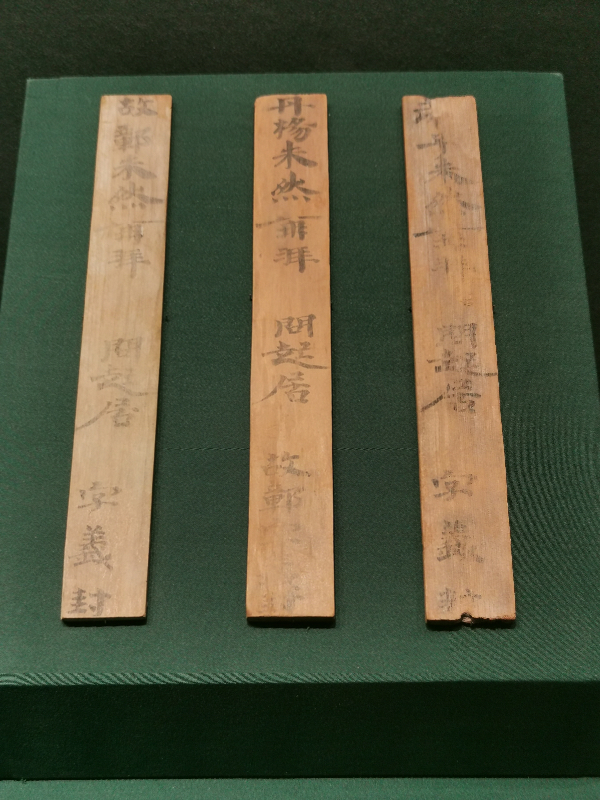 弟子朱然再拜 問起居 字義封
丹楊朱然再拜 問起居 故鄣字義封
故鄣朱然再拜 問起居 字義封